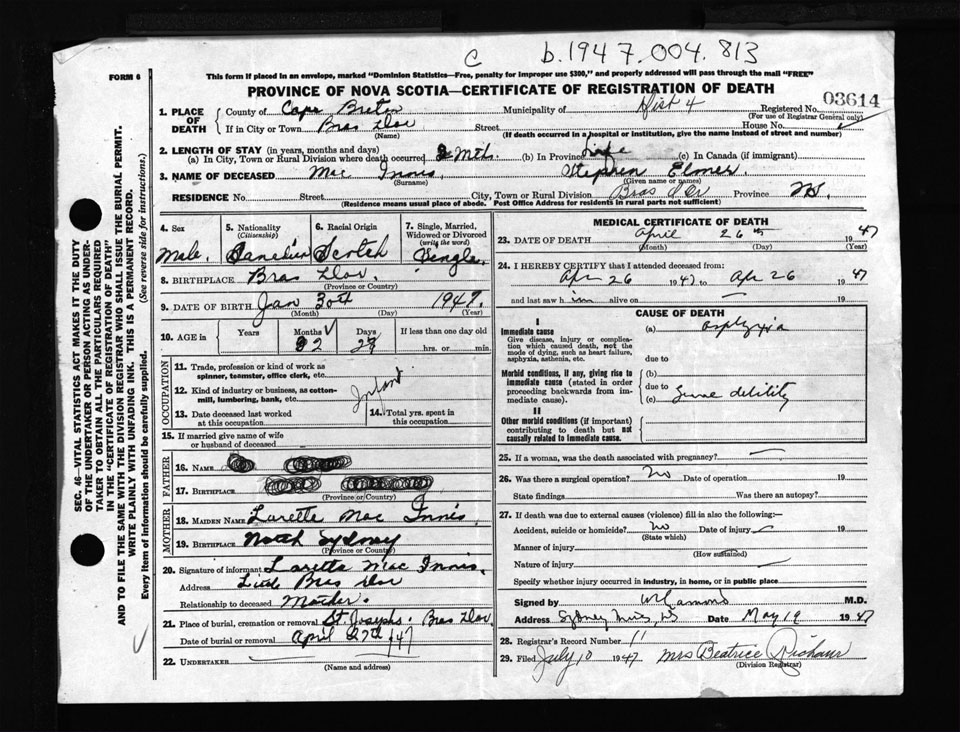 C b.1947.004.813
FORM 6
This form if placed in an envelope, marked "Dominion Statistics—Free, penalty for improper use $300," and properly addressed will pass through the mail "FREE"
PROVINCE OF NOVA SCOTIA—CERTIFICATE OF REGISTRATION OF DEATH
1. PLACE OF DEATH County of Cape Breton Municipality of Dist 4 Registered No. 03614
(For use of Registrar General only)
If in City or Town Bras Dor Street House No.
(Name) (If death occurred in a hospital or institution, give the name instead of street and number)
2. LENGTH OF STAY (in years, months and days)
(a) In City, Town or Rural Division where death occurred 2 Mths. (b) In Province Life (c) In Canada (if immigrant)
3. NAME OF DECEASED Mac Innis. Stephen Elmer.
(Surname) (Given name or names)
RESIDENCE No. Street City, Town or Rural Division Bras d'Or Province NS.
(Residence means usual place of abode. Post Office Address for residents in rural parts not sufficient)
4. Sex Male.
5. Nationality (Citizenship) Canadian
6. Racial Origin Scotch
7. Single, Married, Widowed or Divorced (write the word) Single.
8. BIRTHPLACE Bras Dor.
(Province or Country)
9. DATE OF BIRTH Jan 30th 1947.
(Month) (Day) (Year)
10. AGE in Years Months 2 Days 27 If less than one day old
hrs. or min.
OCCUPATION
11. Trade, profession or kind of work as spinner, teamster, office clerk, etc.
12. Kind of industry or business, as cotton-mill, lumbering, bank, etc. Infant
13. Date deceased last worked at this occupation
14. Total yrs. spent in this occupation
15. If married give name of wife or husband of deceased
FATHER
16. NAME
17. BIRTHPLACE
(Province or Country)
MOTHER
18. MAIDEN NAME Laretta Mac Innis.
19. BIRTHPLACE North Sydney
(Province or Country)
20. Signature of informant Laretta Mac Innis.
Address Little Bras Dor
Relationship to deceased Mother.
21. Place of burial, cremation or removal St. Josephs. Bras Dor.
Date of burial or removal April 27th /47
22. UNDERTAKER
(Name and address)
MEDICAL CERTIFICATE OF DEATH
23. DATE OF DEATH April 26th 1947
(Month) (Day)
24. I HEREBY CERTIFY that I attended deceased from:
Apr 26 1947 to Apr 26 1947
and last saw h im alive on 19
CAUSE OF DEATH
I
Immediate cause (a) asphyxia
Give disease, injury or complication which caused death, not the mode of dying, such as heart failure, asphyxia, asthenia, etc.
due to
Morbid conditions, if any, giving rise to immediate cause (stated in order proceeding backwards from immediate cause).
(b)
due to
(c) debility
II
Other morbid conditions (if important) contributing to death but not causally related to immediate cause.
25. If a woman, was the death associated with pregnancy?
26. Was there a surgical operation? No Date of operation 19
State findings Was there an autopsy?
27. If death was due to external causes (violence) fill in also the following:—
Accident, suicide or homicide? No Date of injury 19
(State which)
Manner of injury
(How sustained)
Nature of injury
Specify whether injury occurred in industry, in home, or in public place
Signed by M.D.
Address Sydney Mines, NS Date May 19 1947
28. Registrar's Record Number 11
29. Filed July 10 1947 Mrs Beatrice
(Division Registrar)
SEC. 46—VITAL STATISTICS ACT MAKES IT THE DUTY
OF THE UNDERTAKER OR PERSON ACTING AS UNDER-
TAKER TO OBTAIN ALL THE PARTICULARS REQUIRED
IN THE "CERTIFICATE OF REGISTRATION OF DEATH"
AND TO FILE THE SAME WITH THE DIVISION REGISTRAR WHO SHALL ISSUE THE BURIAL PERMIT.
WRITE PLAINLY WITH UNFADING INK. THIS IS A PERMANENT RECORD.
Every item of information should be carefully supplied. (See reverse side for instructions.)